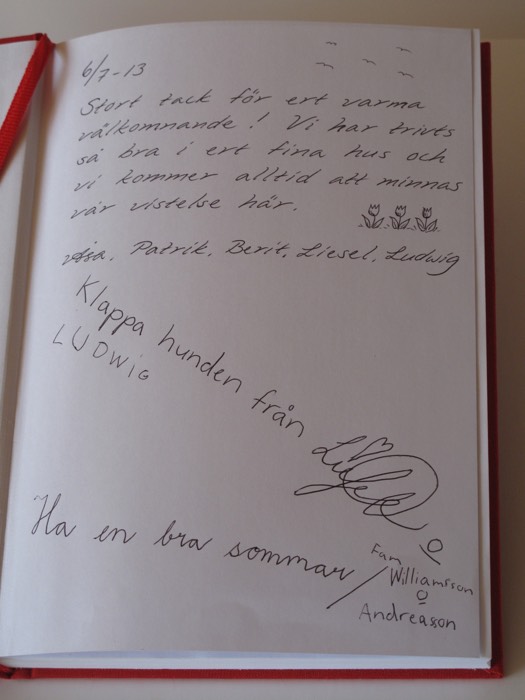 6/7-13
Stort tack för ert varma
välkomnande! Vi har trivts
så bra i ert fina hus och
vi kommer alltid att minnas
vår vistelse här.
Patrik, Berit, Liesel, Ludwig
Klappa hunden från
LUDWIG
Ha en bra sommar /
Fam
Williamsson
o
Andreasson